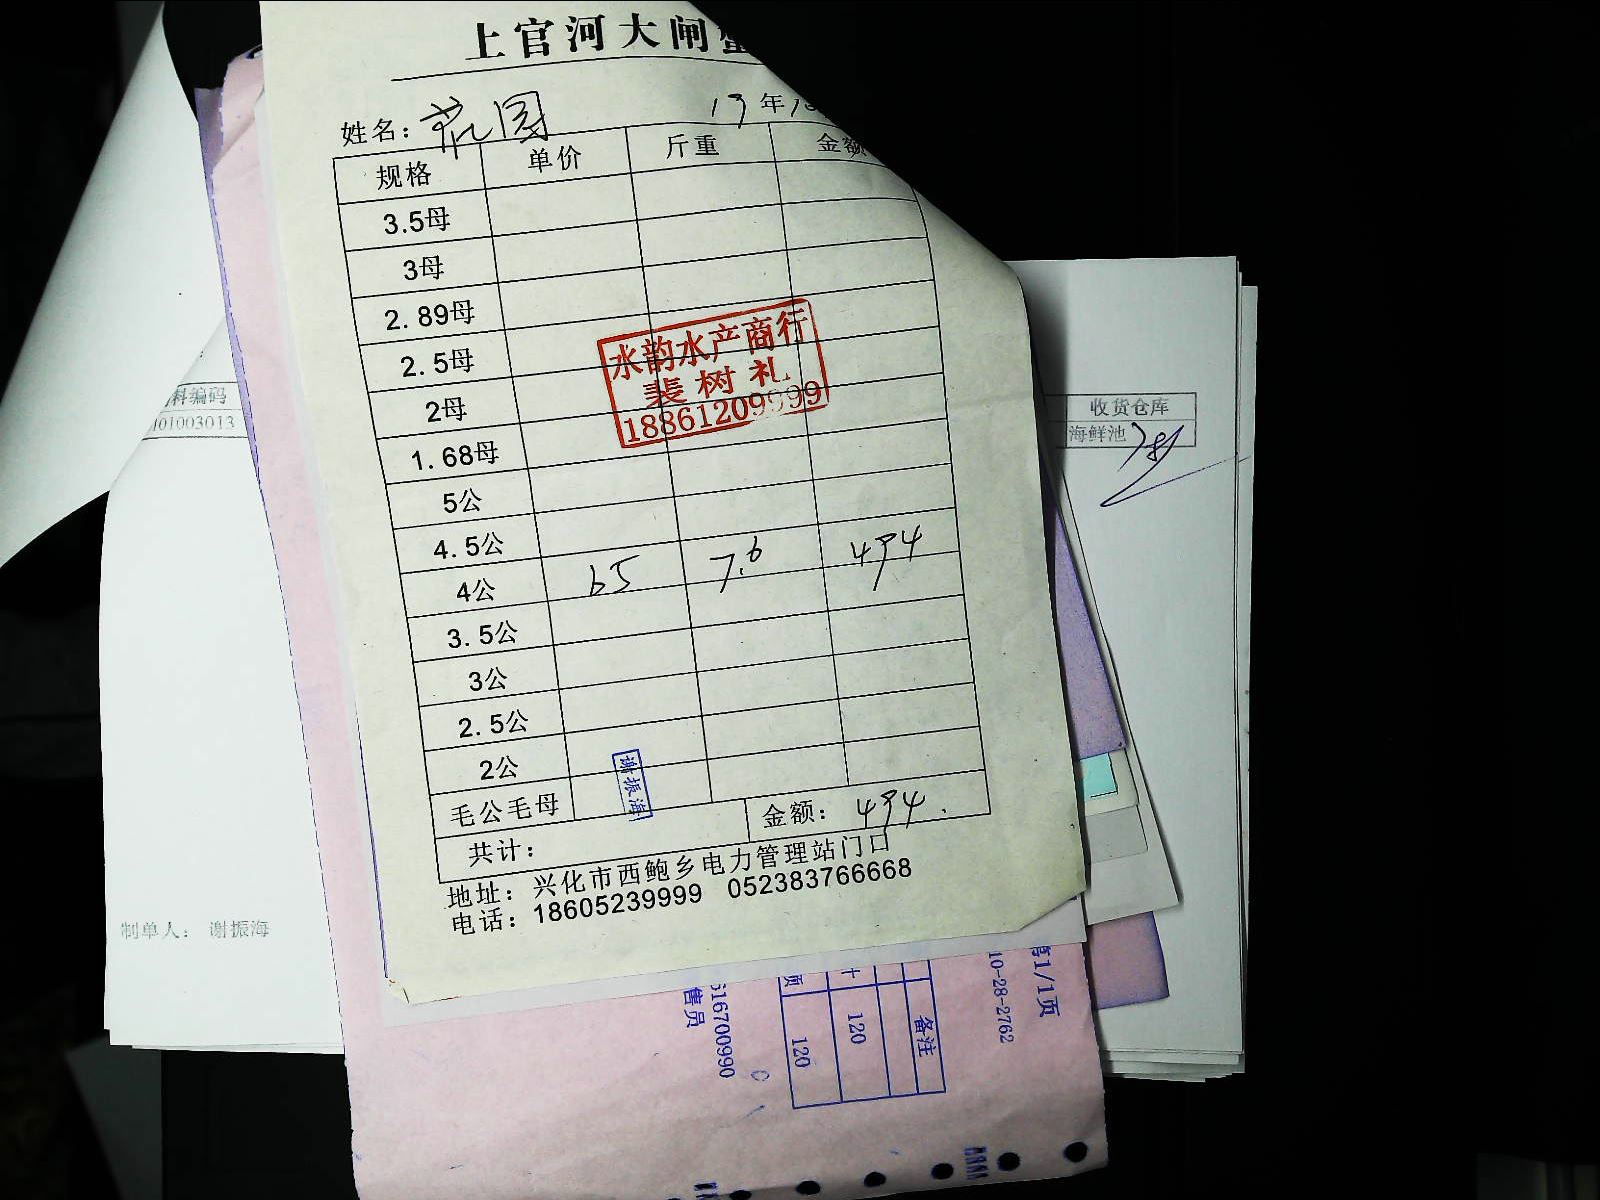 上官河大闸蟹
姓名：花园
19年
规格 单价 斤重 金额
3.5母
3母
2.89母
2.5母
2母
1.68母
5公
4.5公
4公 65 7.6 494
3.5公
3公
2.5公
2公
毛公毛母
共计： 金额：494.
地址：兴化市西鲍乡电力管理站门口
电话：18605239999 052383766668
水韵水产商行
裴树礼
18861209999
谢振海
料编码
01003013
制单人： 谢振海
收货仓库
海鲜池
1/1页
10-28-2762
备注
120
120
售员
516700990